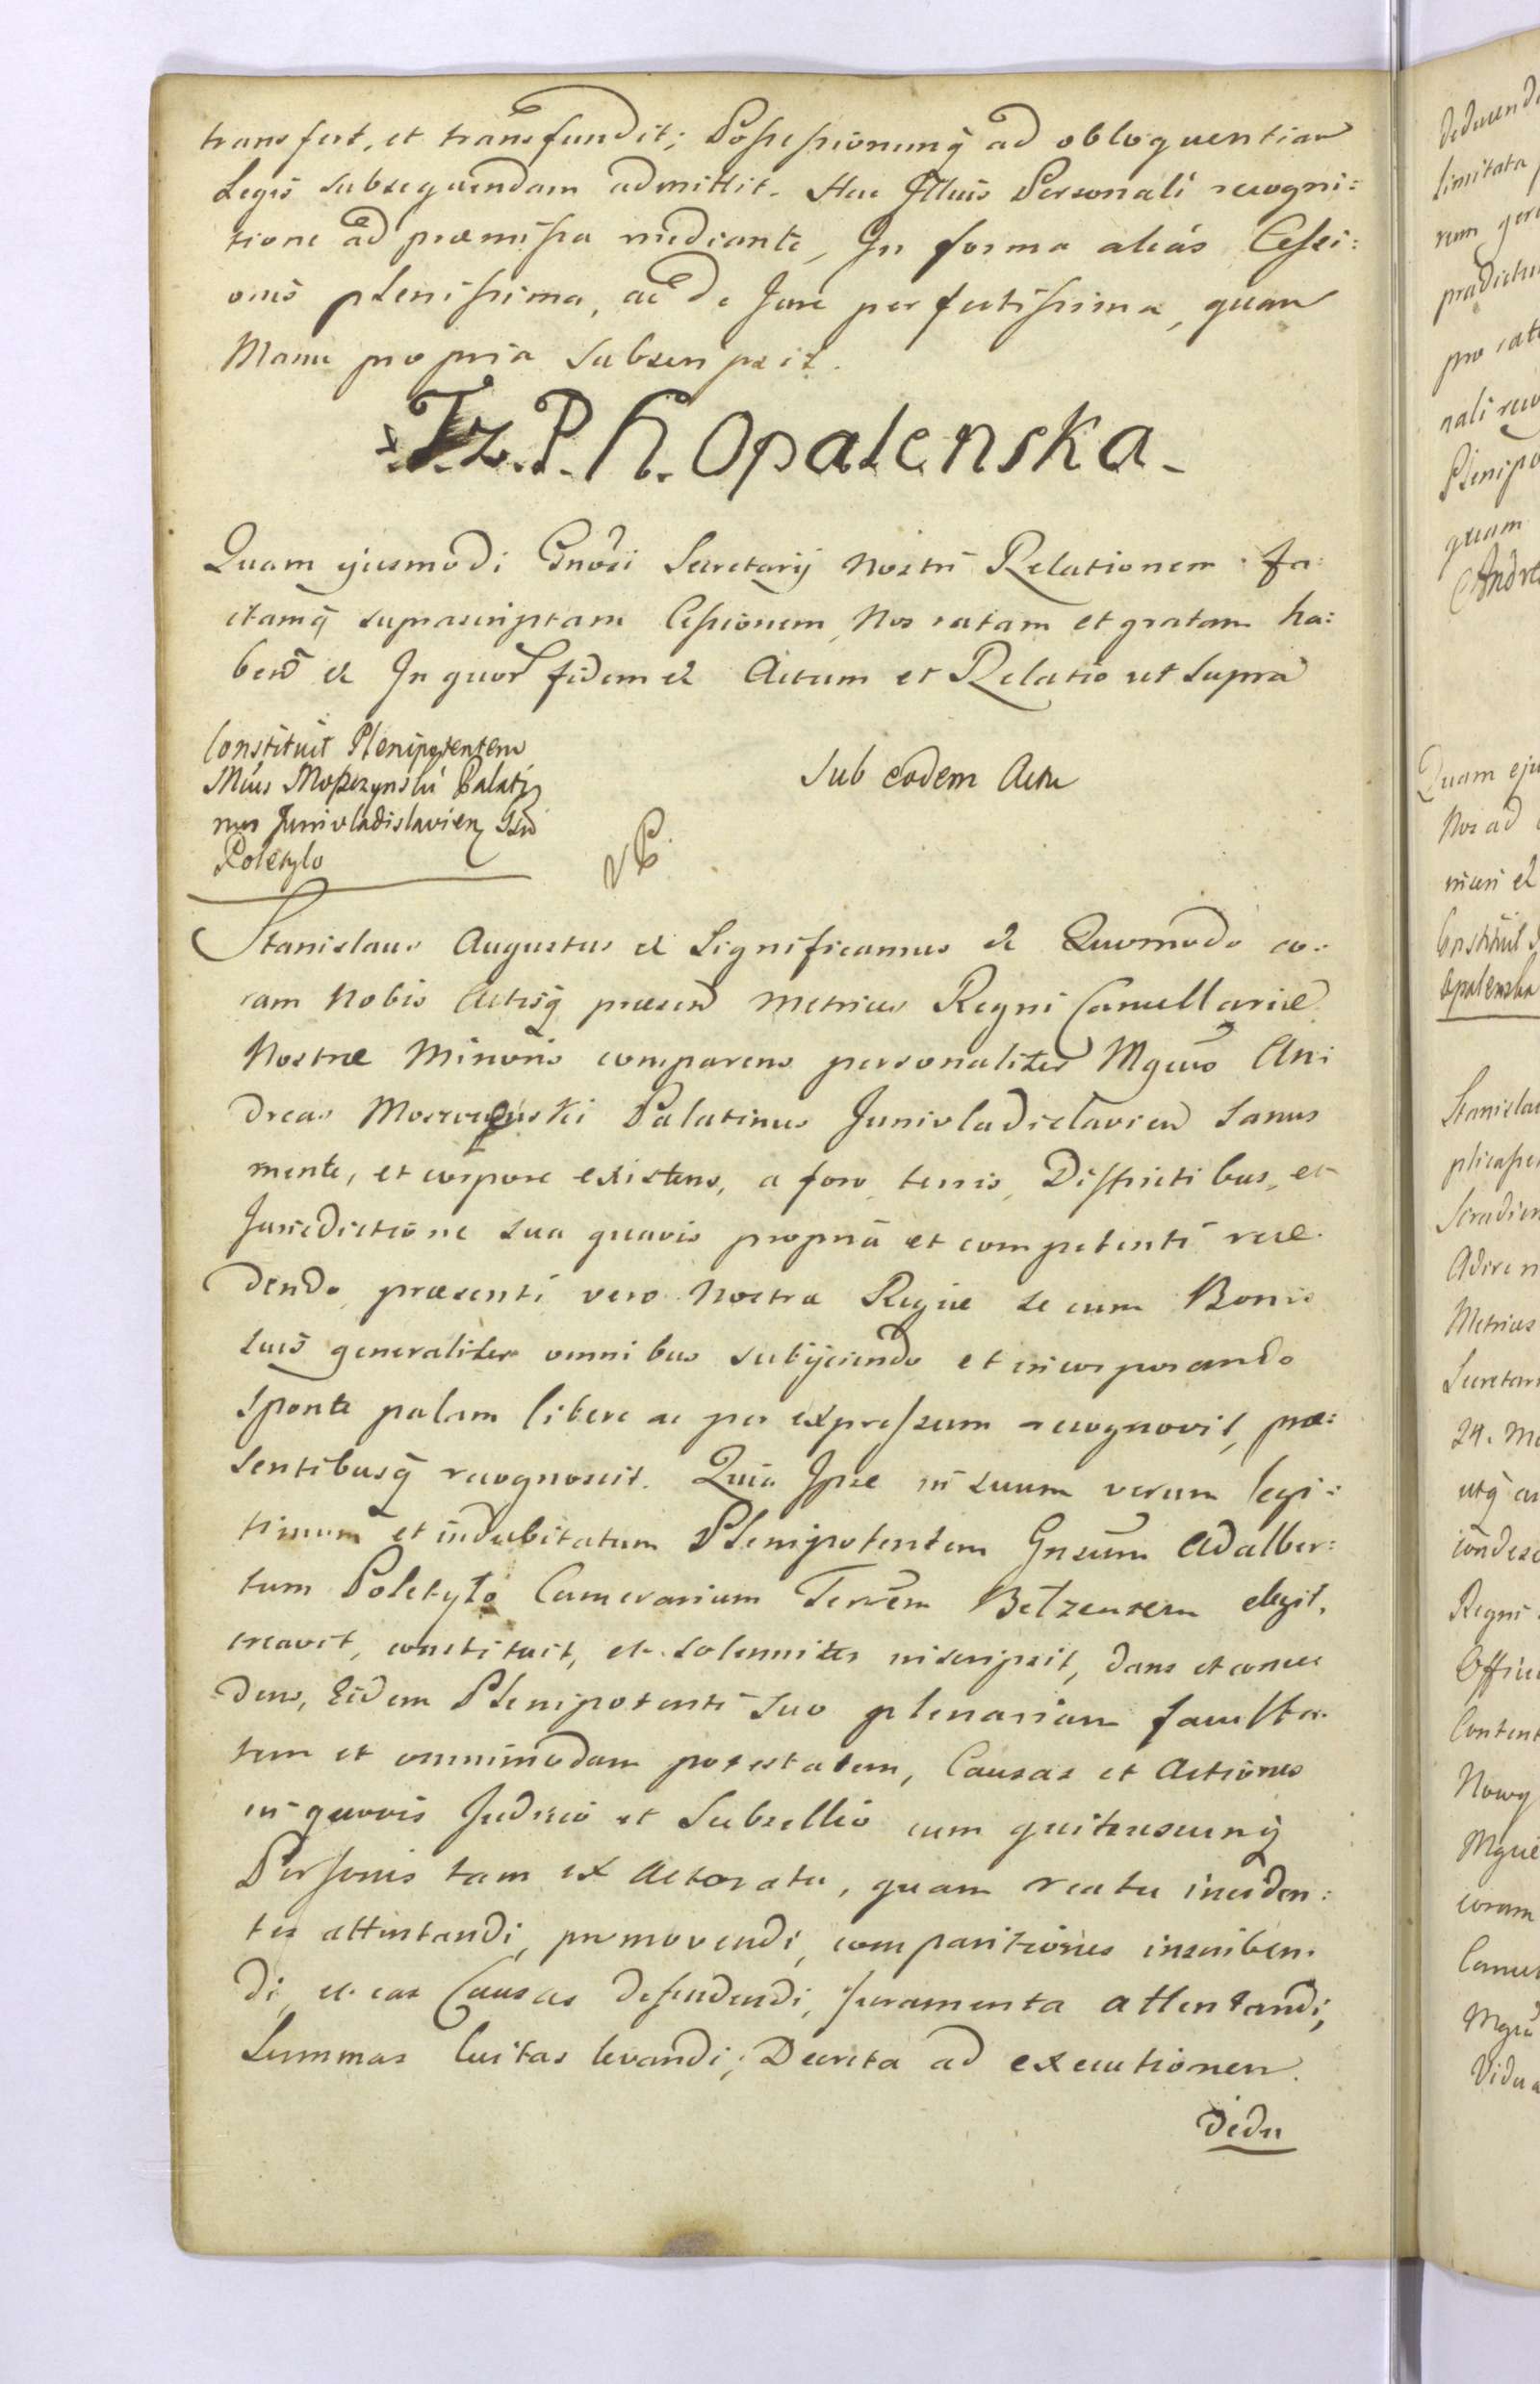 transfert, et transfundit; Possessionemq̃ ad obloquentiam
Legis subsequendam admittit. Hac Illius Personali recogni:
tione ad præmissa mediante, In forma alias Cessi:
onis plenissima, ac de Jure perfectissima, quam
Manu propria subscripsit.
Tz. P. K. Opalenska.
Quam ejusmodi Gnosi Secretarij Nostri Relationem fa:
ctamq̃ suprascriptam Cessionem, Nos ratam et gratam ha:
ben̄ &c In quor̄ fidem &c Actum et Relatio ut supra
Constituit Plenipotentem
Mcus Moszczynski Palati
nus Junivladislavien Gsū
Poletylo
Sub eodem Actu
Stanislaus Augustus &c Significamus &c Quomodo co:
ram Nobis Actisq̃ præsen̄ Metrices Regni Cancellariæ
Nostræ Minoris comparens personaliter Mgcus An:
dreas Moszczenski Palatinus Junivladislavien̄ sanus
mente, et corpore existens, a foro, terris, Districtibus, et
Jurisdictione sua quavis propriâ et competenti rece.
dendo, præsenti vero Nostræ Regiæ se cum Bonis
suis generaliter omnibus subijciendo et incorporando
sponte palam libere ac per expressum recognovit, præ:
sentibusq̃ recognoscit. Quia Ipse in suum verum legi:
timum et indubitatum Plenipotentem Gnsum Adalber:
tum Poletyło Camerarium Terrēm Bełzensem elegit,
creavit, constituit, et solenniter inscripsit, dans et conce
dens, Eidem Plenipotenti suo plenariam faculta.
tem et omnimodam potestatem, Causas et Actiones
in quovis Judicio et Subsellio cum quibuscunq̃
Personis tam ex Actoratu, quam reatu inciden:
tes attentandi, promovendi, comparitiones inscriben.
di, et eas Causas defendendi, juramenta attentandi,
Summas luitas levandi; Decreta ad executionem.
dedu
dedu
limitata
pro rat
nali reco
Plenipo
quam
Quam eju
Nos ad
Constituit
Opalenska
Stanislau
Siradien
Metrices
Secretari
24. Ma
condesc
Regni
Offici
Content
Nowy
Mgce
coram
Vidua